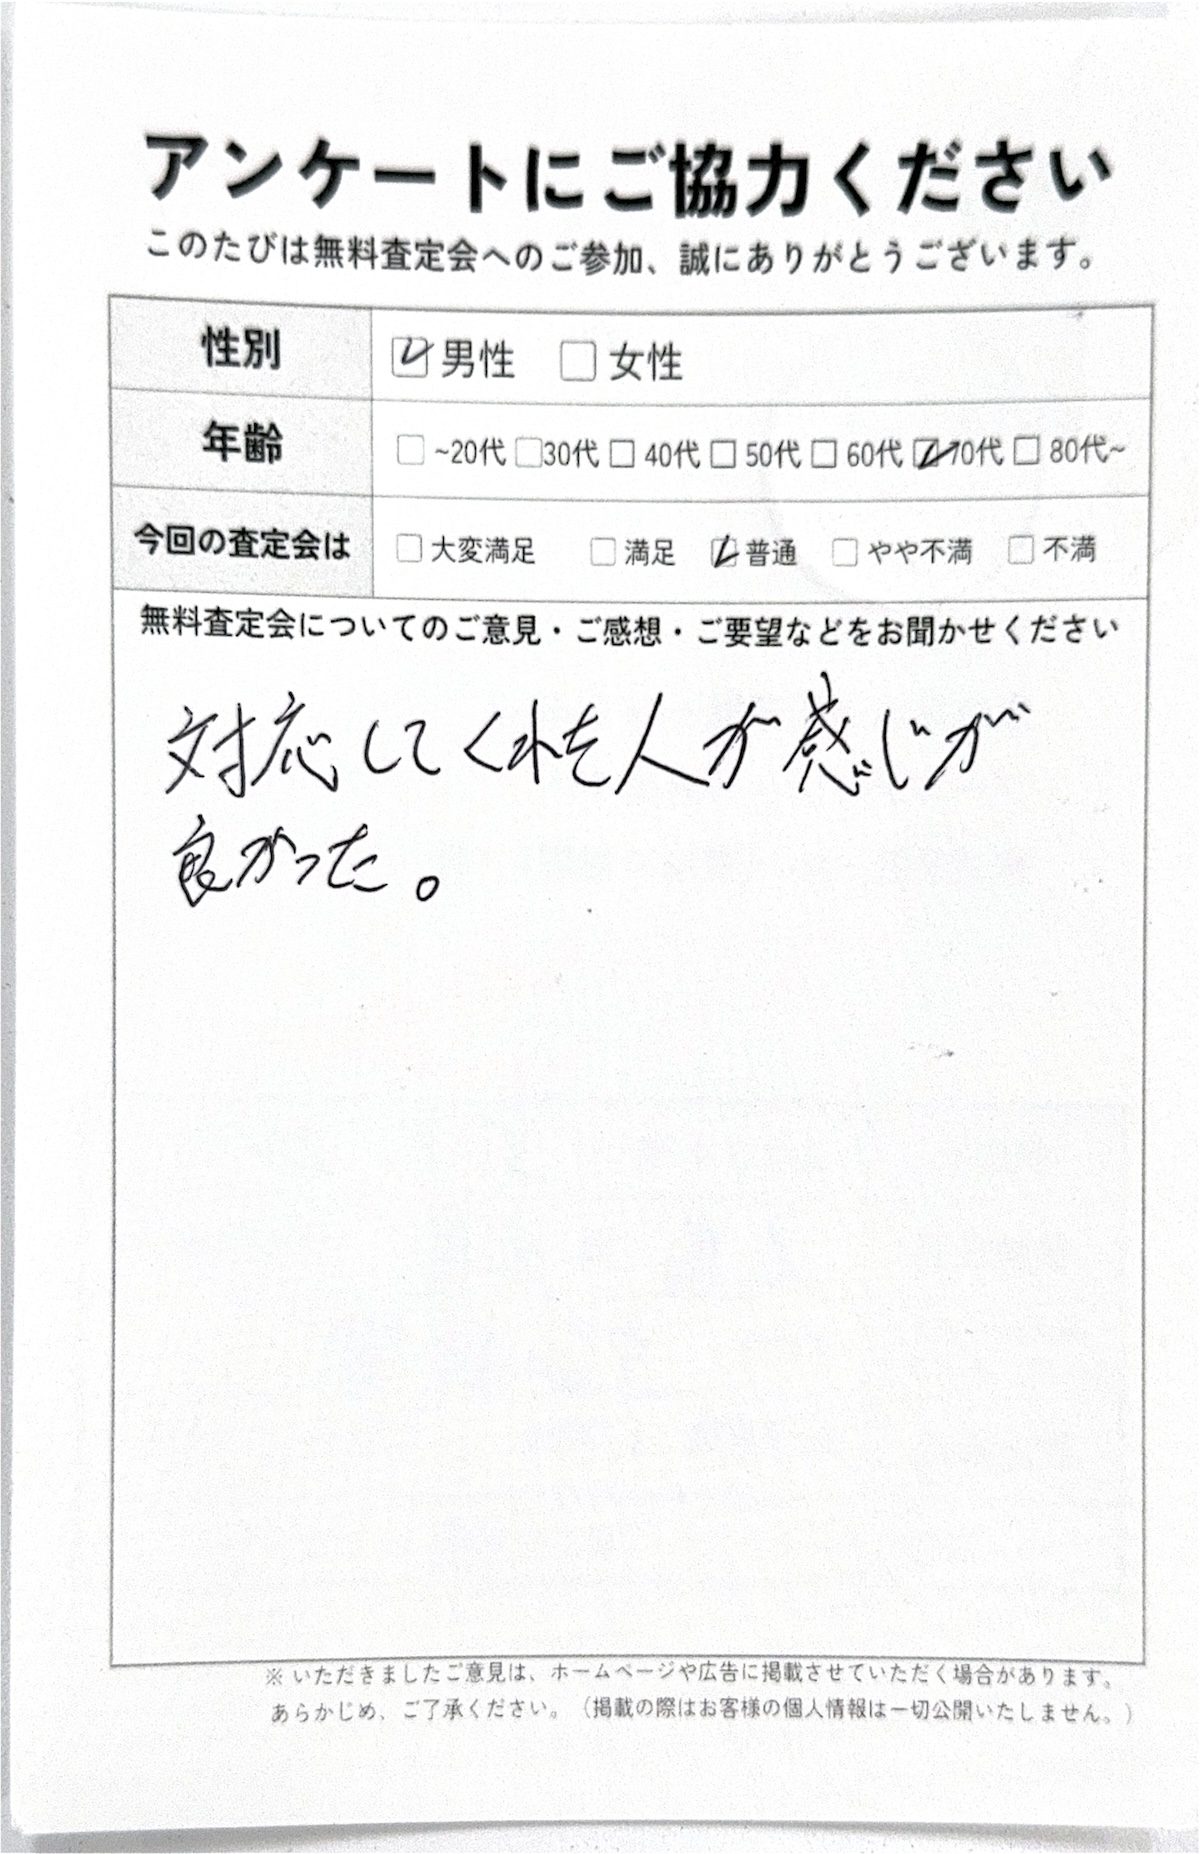 アンケートにご協力ください
このたびは無料査定会へのご参加、誠にありがとうございます。
性別 ☑ 男性 □ 女性
年齢 □ ~20代 □ 30代 □ 40代 □ 50代 □ 60代 ☑ 70代 □ 80代~
今回の査定会は □ 大変満足 □ 満足 ☑ 普通 □ やや不満 □ 不満
無料査定会についてのご意見・ご感想・ご要望などをお聞かせください
対応してくれた人が感じが
良かった。
※ いただきましたご意見は、ホームページや広告に掲載させていただく場合があります。
あらかじめ、ご了承ください。（掲載の際はお客様の個人情報は一切公開いたしません。）